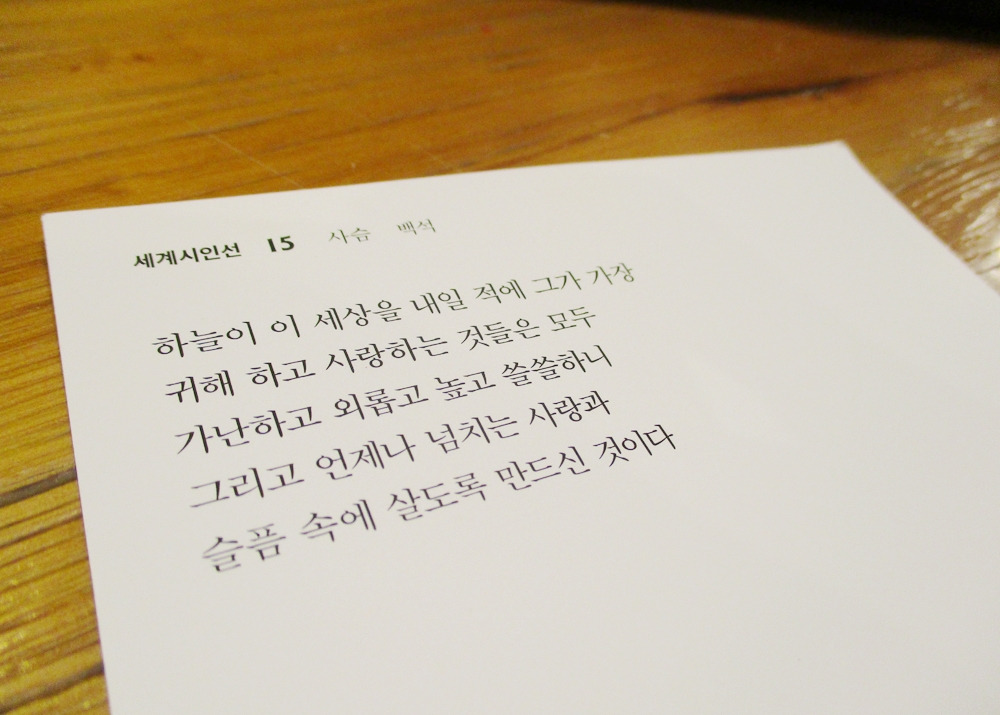 세계시인선 15 사슴 백석
하늘이 이 세상을 내일 적에 그가 가장
귀해 하고 사랑하는 것들은 모두
가난하고 외롭고 높고 쓸쓸하니
그리고 언제나 넘치는 사랑과
슬픔 속에 살도록 만드신 것이다